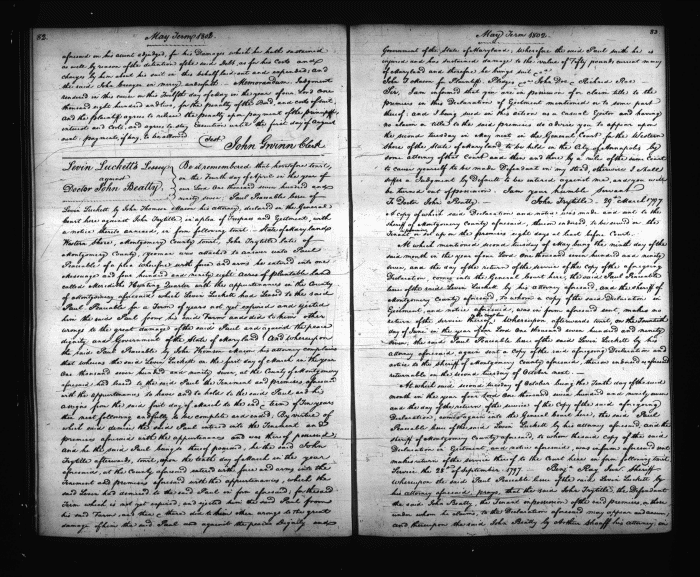 82.
May Term 1802.
aforesaid in his accnt adjudged, for his Damages which he hath sustained
as well by reason of the detention of the said Debt, as for his Costs and
charges by him about his suit in this behalf laid out and expended; and
the said John Seegar in mercy &c. Memorandum. Judgment
rendered in this cause on the twelfth day of May in the year of our Lord one
thousand eight hundred and two, for the penalty of the Bond, and costs of suit,
and the plaintiff agrees to release the penalty upon payment of the principal,
interest and Costs, and agrees to stay Execution until the first day of August
next; payments, if any, to be allowed
Test. John Gwinn Clerk
Levin Luckett's Lessee
against
Doctor John Beatty.
Be it remembered that heretofore to wit,
on the Fourth day of April in the year of
our Lord one thousand seven hundred and
ninety seven; Paul Peaceable lessee of
Levin Luckett by John Thomson Mason his attorney, declared in the General
Court here against John Faytitle, in a plea of Trespass and Ejectment, with
a notice thereto annexed, in form following to wit. State of Maryland
Western Shore, Montgomery County to wit, John Faytitle late of
Montgomery County, yeoman was attached to answer unto Paul
Peaceable of a plea wherefore with force and arms he entered into one
Messuage and four hundred and ninety eight acres of plantable land
called Meredith's Hunting Quarter with the appurtenances in the County
of Montgomery aforesaid which Levin Luckett had leased to the said
Paul Peaceable for a Term of years not yet expired and ejected
him the said Paul from his said Farm and did to him other
wrongs to the great damage of the said Paul and against the peace
dignity and Government of the State of Maryland. And whereupon
the said Paul Peaceable by John Thomson Mason his attorney complains
that whereas the said Levin Luckett on the first day of March in the year
one thousand seven hundred and ninety seven, at the County of Montgomery
aforesaid had leased to the said Paul the Tenement and premises aforesaid
with the appurtenances to have and to hold to the said Paul and his
assigns from the said first day of March to the end & term of Ten years
then next following and fully to be complete and ended. By virtue of
which said demise the said Paul entered into the Tenement and
premises aforesaid with the appurtenances and was thereof possessed,
and he the said Paul being so thereof possessed, he the said John
Faytitle afterwards to wit, upon the tenth day of March in the year
aforesaid, at the County aforesaid entered with force and arms into the
Tenement and premises aforesaid with the appurtenances, which the
said Levin had demised to the said Paul in form aforesaid, for the said
Term which is not yet expired, and ejected him the said Paul from
his said Farm, and then & there did to him other wrongs to the great
damage of him the said Paul and against the peace Dignity and
May Term 1802.
83
Government of the State of Maryland; wherefore the said Paul saith he is
injured and has sustained damage to the value of Fifty pounds current money
of Maryland and therefore he brings suit &c.
John T. Mason for Plaintiff. Pledges &c. John Doe & Richard Roe
Sir, I am informed that you are in possession or claim title to the
premises in this Declaration of Ejectment mentioned or to some part
thereof; and I being sued in this action as a Casual Ejector and having
no claim or title to the said premises do advise you to appear upon
the second tuesday in May next in the General Court for the Western
Shore of the State of Maryland to be held in the City of Annapolis by
some attorney of that Court and then and there by a rule of the same Court
to cause yourself to be made Defendant in my stead, otherwise I shall
suffer a Judgment by Default to be entered against me, and you will
be turned out of possession. I am your humble Servant
To Doctor John Beatty. John Faytitle. 29th March 1797
A Copy of which said Declaration and notice was made and sent to the
sheriff of Montgomery County aforesaid, thereon indorsed to be served on the
Tenant in possession fifteen nights day at least before Court.
At which mentioned second tuesday of May being the ninth day of the said
month in the year of our Lord one thousand seven hundred and ninety
seven, and the day of the return of the service of the copy of the aforegoing
Declaration, comes into the General Court here, the said Paul Peaceable
lessee of the said Levin Luckett by his attorney aforesaid, and the sheriff of
Montgomery County aforesaid, to whom a copy of the said Declaration in
Ejectment, and notice aforesaid, was in form aforesaid sent, makes no
return of the service thereof. Whereupon afterwards to wit, on the Fourteenth
day of June in the year of our Lord One thousand seven hundred and ninety
seven, the said Paul Peaceable lessee of the said Levin Luckett by his
attorney aforesaid again sent a Copy of the said aforegoing Declaration and
notice to the Sheriff of Montgomery County aforesaid, thereon indorsed as aforesaid
returnable on the second tuesday of October next.
At which said second tuesday of October being the Tenth day of the said
month in the year of our Lord One thousand seven hundred and ninety seven
and the day of the return of the service of the Copy of the said aforegoing
Declaration, comes again into the General Court here, the said Paul
Peaceable lessee of the said Levin Luckett by his attorney aforesaid, and the
Sheriff of Montgomery County aforesaid, to whom the said copy of the said
Declaration in Ejectment, and notice aforesaid, was in form aforesaid sent
makes return of the service thereof to the Court here in form following to wit,
Service the 22d of September 1797 Benj.n Ray Junr. Sheriff
Whereupon the said Paul Peaceable lessee of the said Levin Luckett by
his attorney aforesaid, prays, that the said John Faytitle, the Defendant
the said John Beatty, the Tenant in possession of the said premises, or those
under whom he claims, to the Declaration aforesaid may appear and answer;
and thereupon the said John Beatty by Arthur Shaaff his attorney, in